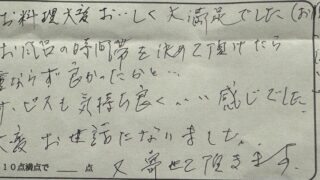 お料理大変おいしく大満足でした(お
お風呂の時間帯を決めて頂けたら
重ならず良かったかと…
サービスも気持ち良く、いい感じでした
大変お世話になりました。
10点満点で 点 又寄せて頂きます。